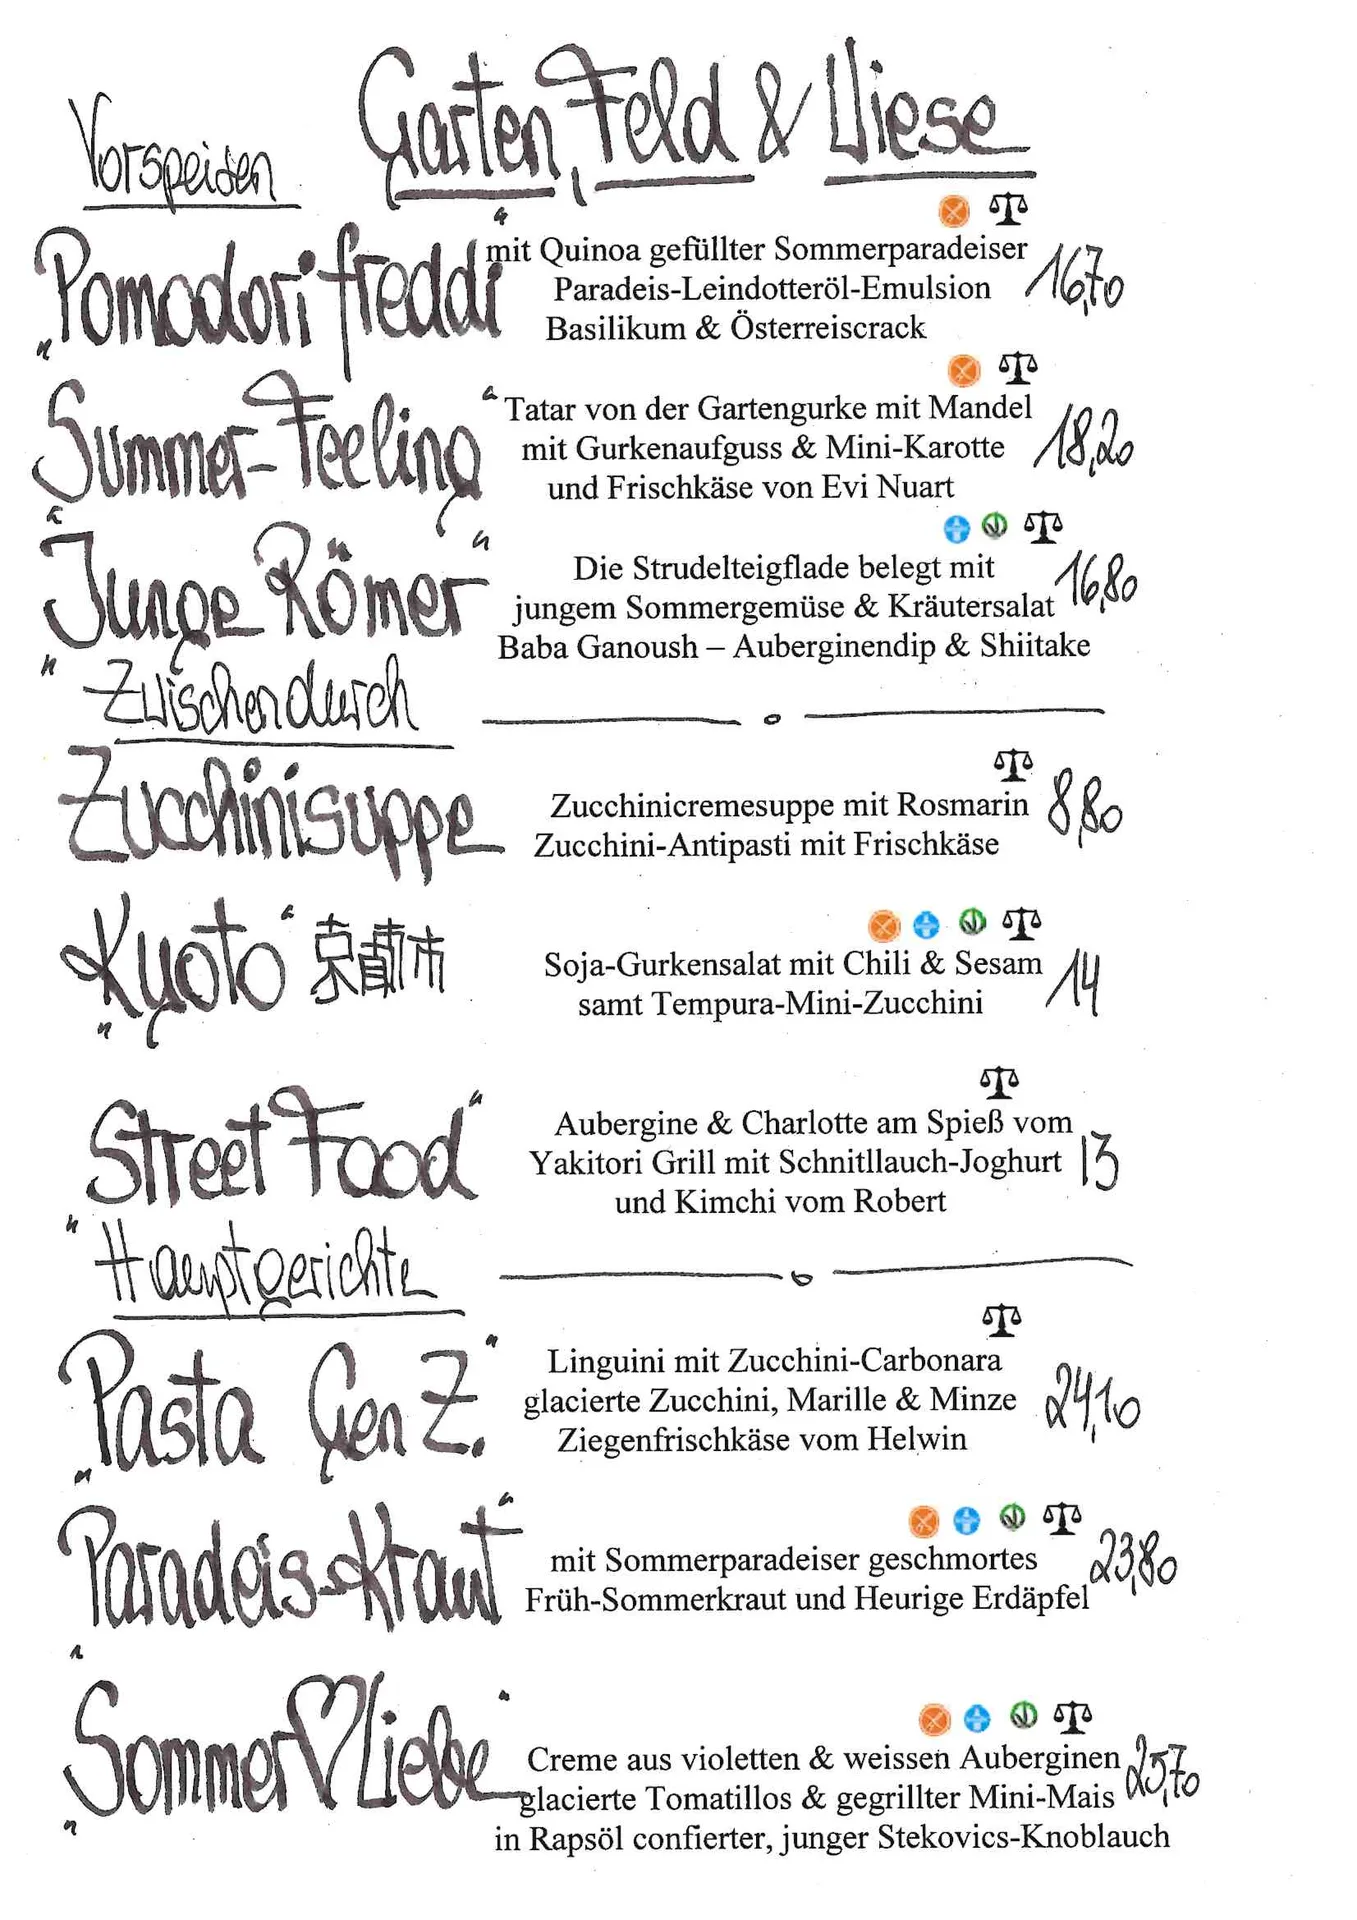 Vorspeisen
Garten, Feld & Wiese
„Pomodori freddi“
mit Quinoa gefüllter Sommerparadeiser
Paradeis-Leindotteröl-Emulsion
Basilikum & Österreiscrack
16,70
Summer-Feeling“
Tatar von der Gartengurke mit Mandel
mit Gurkenaufguss & Mini-Karotte
und Frischkäse von Evi Nuart
18,20
„Junge Römer“
Die Strudelteigflade belegt mit
jungem Sommergemüse & Kräutersalat
Baba Ganoush – Auberginendip & Shiitake
16,80
Zwischendurch
Zucchinisuppe
Zucchinicremesuppe mit Rosmarin
Zucchini-Antipasti mit Frischkäse
8,80
„Kyoto“ 京都市
Soja-Gurkensalat mit Chili & Sesam
samt Tempura-Mini-Zucchini
14
„Street Food“
Aubergine & Charlotte am Spieß vom
Yakitori Grill mit Schnitllauch-Joghurt
und Kimchi vom Robert
13
Hauptgerichte
„Pasta Gen Z.“
Linguini mit Zucchini-Carbonara
glacierte Zucchini, Marille & Minze
Ziegenfrischkäse vom Helwin
24,10
„Paradeis-Kraut“
mit Sommerparadeiser geschmortes
Früh-Sommerkraut und Heurige Erdäpfel
23,80
„Sommer♡Liebe“
Creme aus violetten & weissen Auberginen
glacierte Tomatillos & gegrillter Mini-Mais
in Rapsöl confierter, junger Stekovics-Knoblauch
25,70